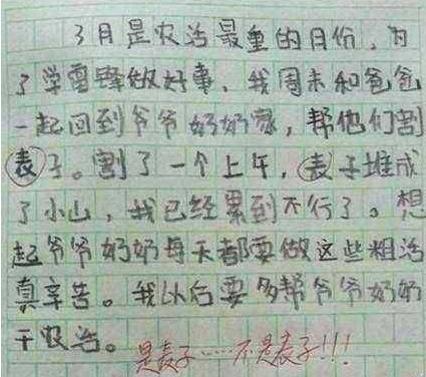 3月是农活最重的月份，为
了学雷锋做好事，我周末和爸爸
一起回到爷爷奶奶家，帮他们割
表子。割了一个上午，表子堆成
了小山，我已经累到不行了。想
起爷爷奶奶每天都要做这些粗活
真辛苦。我以后要多帮爷爷奶奶
干农活。是麦子……不是表子!!!